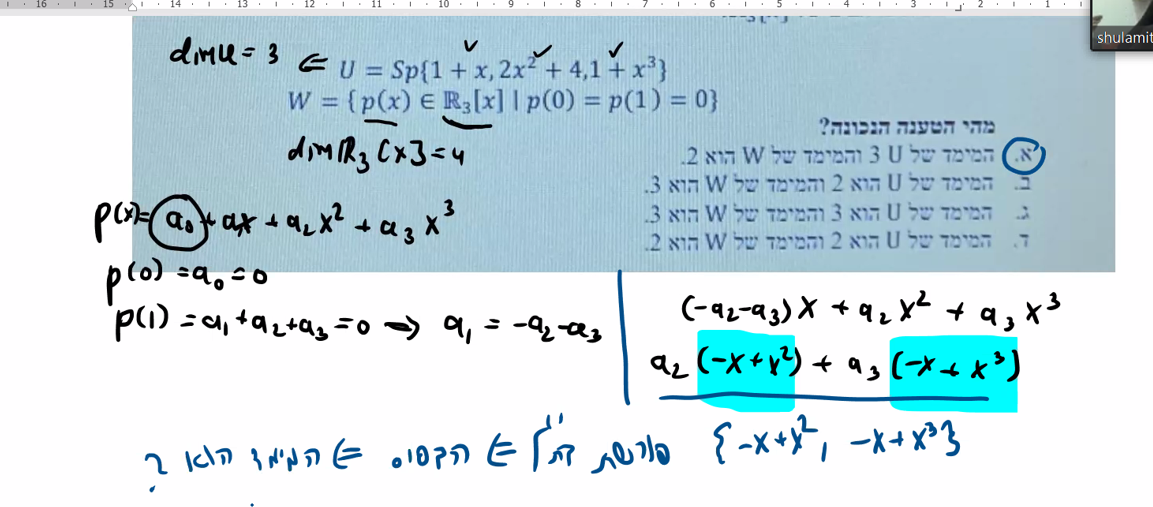 16 15 14 13 12 11 10 9 8 7 6 5 4 3 2 1
shulamit
dim U = 3 ⇐ U = Sp{1 + x, 2x² + 4,1 + x³}
W = {p(x) ∈ ℝ₃[x] | p(0) = p(1) = 0}
dim ℝ₃[x] = 4
מהי הטענה הנכונה?
א. המימד של U 3 והמימד של W הוא 2.
ב. המימד של U הוא 2 והמימד של W הוא 3.
ג. המימד של U הוא 3 והמימד של W הוא 3.
ד. המימד של U הוא 2 והמימד של W הוא 2.
p(x) = a₀ + a₁x + a₂x² + a₃x³
p(0) = a₀ = 0
p(1) = a₁ + a₂ + a₃ = 0 → a₁ = -a₂ - a₃
(-a₂-a₃)x + a₂x² + a₃x³
a₂(-x+x²) + a₃(-x+x³)
{-x+x², -x+x³} פורשת ⇐ הבסיס ⇐ המימד הוא 2